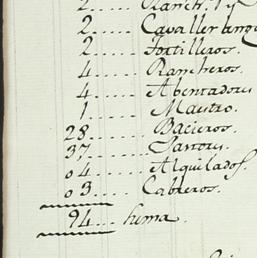 2..... Ranch
2..... Cavallerango
2..... Tortilleros.
4..... Rancheros.
4..... Abentadores
1..... Maestro.
28..... Bacieros.
37..... Pastores.
04..... Alquilados.
03.... Cabreros.
94.... suma.